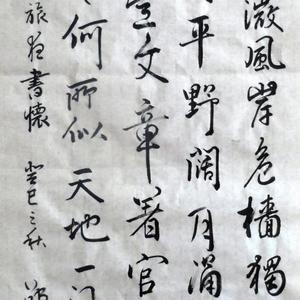 微風岸危檣獨
平野闊月湧
豈文章著官
何所似天地一
旅夜書懷 癸巳之秋